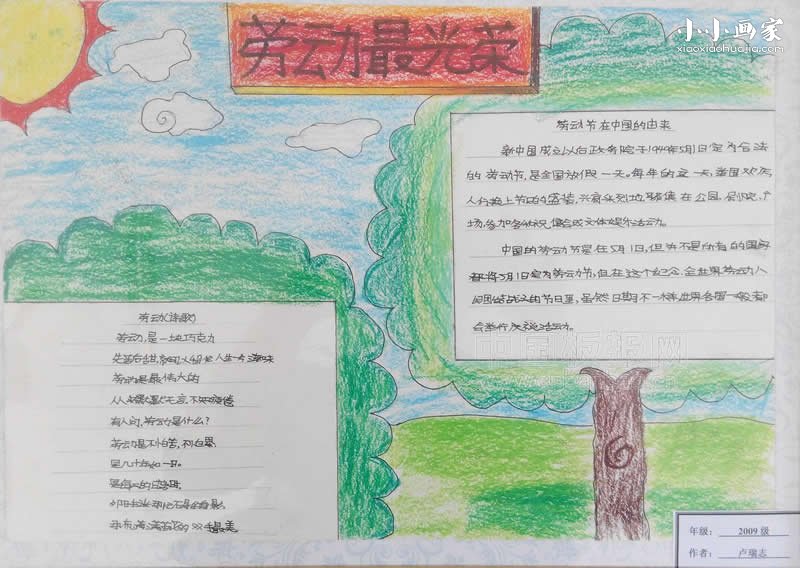 劳动最光荣
小小画家
xiaoxiaohuajia.com
劳动节在中国的由来
新中国成立以后政务院于1949年5月1日定为合法
的劳动节,是全国放假一天。每年的这一天,举国欢庆,
人们换上节日的盛装,兴高采烈地聚集在公园、剧院、广
场,参加各种庆祝集会或文体娱乐活动。
中国的劳动节是在5月1日,但并不是所有的国家
都将5月1日定为劳动节,但在这个纪念,全世界劳动人
民团结战斗的节日里,虽然日期不一样,世界各国一般都
会举行庆祝活动。
劳动(诗歌)
劳动,是一块巧克力
先苦后甜,
劳动是最伟大的
有人问,劳动是什么?
劳动是不怕苦,不怕累
是几十年如一日。
年级: 2009级
作者: 卢瑞志